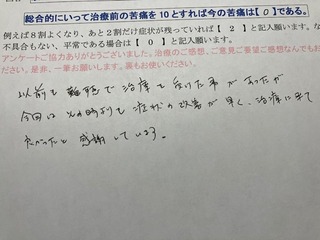 総合的にいって治療前の苦痛を10とすれば今の苦痛は【 0 】である。
例えば8割がよくなり、あと2割だけ症状が残っていれば【 2 】と記入します。
不具合もない、平常である場合は【 0 】と記入願います。
アンケートご協力ありがとうございました。治療のご感想、ご意見ご要望ご感想なんでもお
さい。是非、一筆お願いします。裏もお使いください。
以前も難聴で治療を受けた事があったが
今回はその時よりも症状の改善が早く、治療に来て
よかったと感謝している。